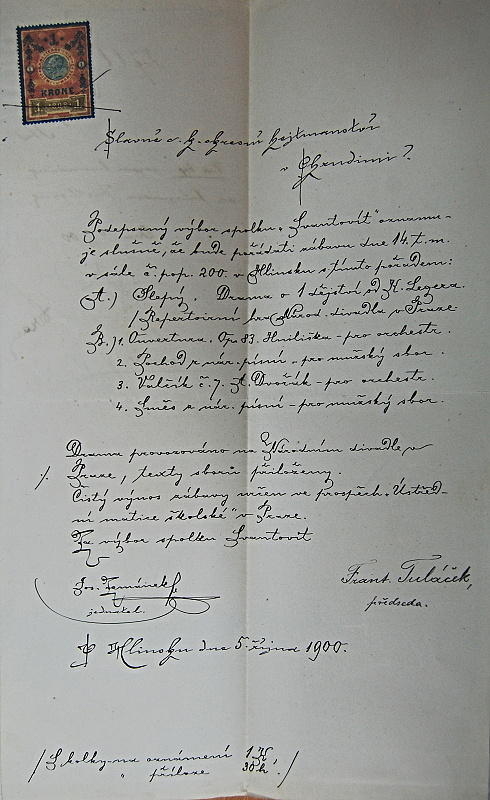 1
KRONE
1 1898 1
Slavné c. k. okresní hejtmanství
v Chrudimi?
Podepsaný výbor spolku „Svantovít" oznamu-
je slušně, že bude pořádati zábavu dne 14. t. m.
v sále č. pop. 200. v Hlinsku s tímto pořadem:
A.) Slepý. Drama o 1 dějství od K. Legera.
/Repertoirní hra Národ. divadla v Praze
B.) 1. Ouvertura. Op. 83. Hniličku - pro orchestr.
2. Pochod z nár. písní „ pro mužský sbor.
3. Valčík č. 7. A. Dvořák - pro orchestr.
4. Směs z nár. písní - pro mužský sbor.
Drama provozováno na Národním divadle v
/. Praze, texty sborů přiloženy.
Čistý výnos zábavy určen ve prospěch „Ústřed-
ní matice školské" v Praze.
Za výbor spolku Svantovít
Jos. Zemánek
jednatel.
Frant. Tuláček,
předseda.
V Hlinsku dne 5. října 1900.
/S kolky na oznámení 1 K
„ příloze 30 h./